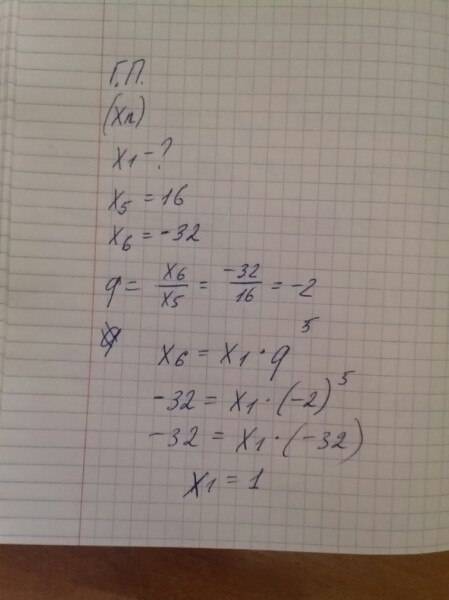 Г.П.
(Xn)
X₁ - ?
X₅ = 16
X₆ = -32
q = X₆/X₅ = -32/16 = -2
X₆ = X₁ · q⁵
-32 = X₁ · (-2)⁵
-32 = X₁ · (-32)
X₁ = 1